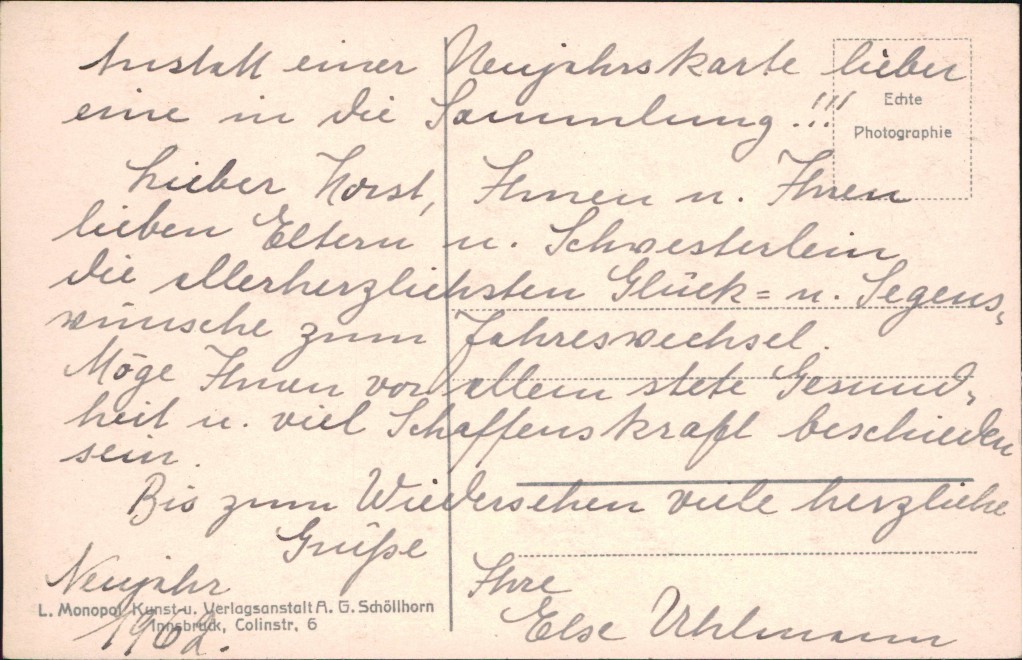 Anstatt einer Neujahrskarte lieber
eine in die Sammlung!!!
Echte
Photographie
Lieber Horst, Ihnen u. Ihren
lieben Eltern u. Schwesterlein
die allerherzlichsten Glück= u. Segens-
wünsche zum Jahreswechsel.
Möge Ihnen vor allem stete Gesund-
heit u. viel Schaffenskraft beschieden
sein.
Bis zum Wiedersehen viele herzliche
Grüße
Neujahr
1962.
Ihre
Else Uhlmann
L. Monopol Kunst-u. Verlagsanstalt A. G. Schöllhorn
Innsbruck, Colinstr, 6